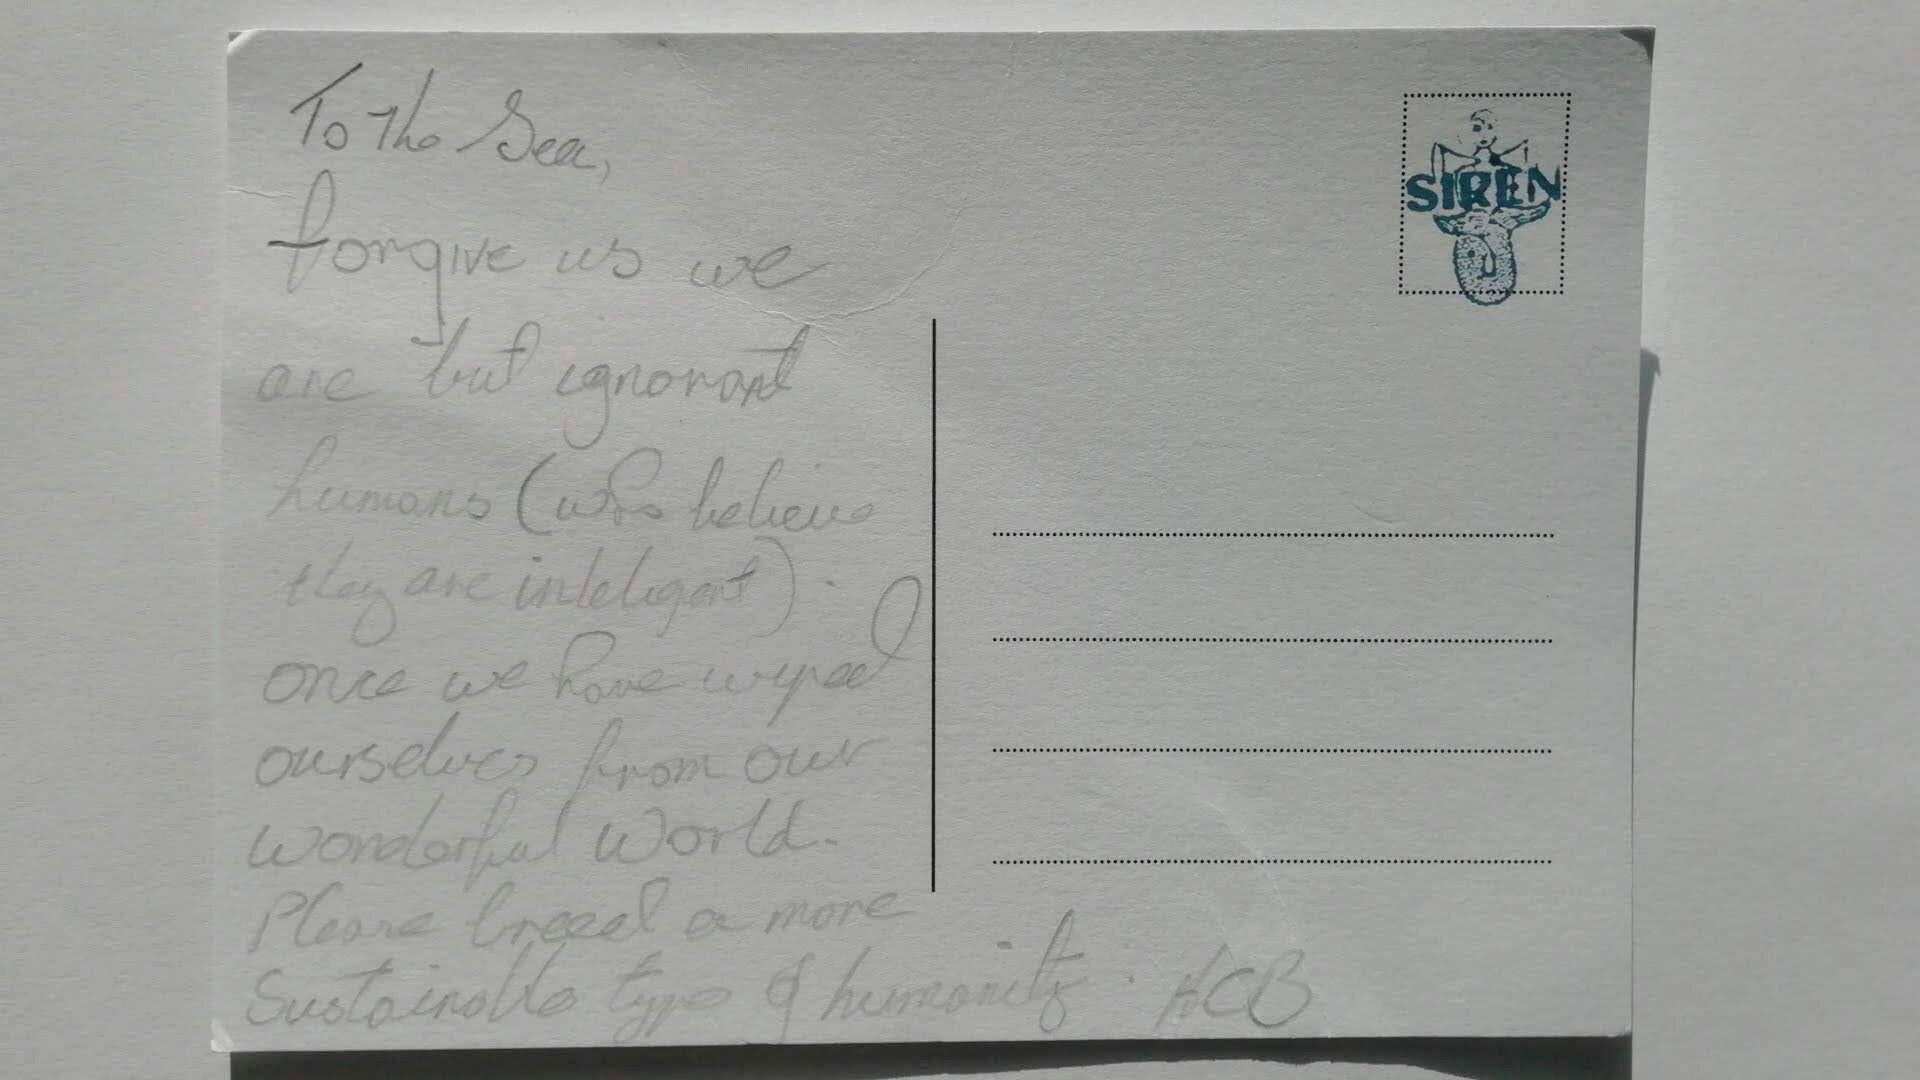 To the Sea,
forgive us we
are but ignorant
humans (who believe
they are inteligent).
once we have wyped
ourselves from our
wonderful world.
Please breed a more
Sustainable type of humanity. ACB
SIREN